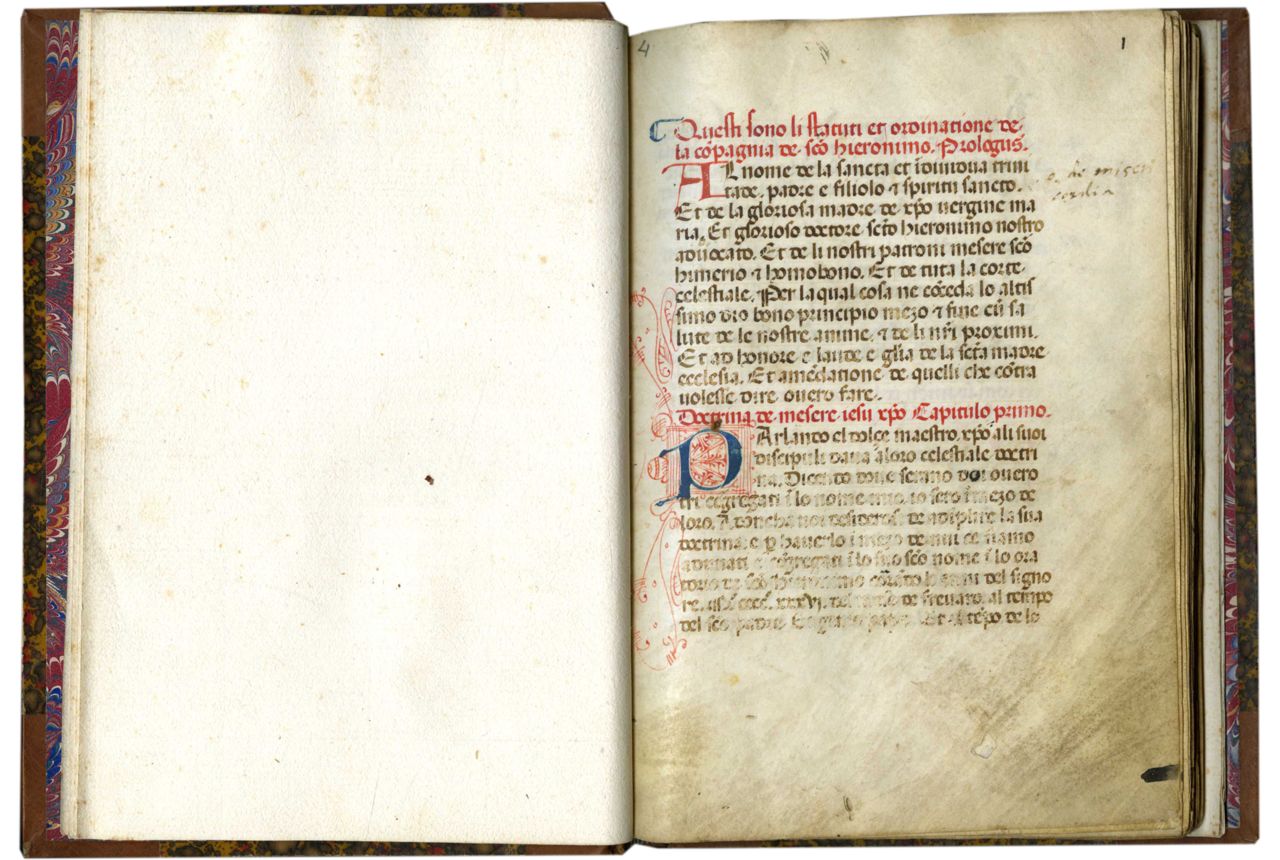 4
1
Questi sono li statuti et ordinatione de
la cõpagnia de scõ hieronimo. Prologus.
AL nome de la sancta et indiuidua trini
tade, padre e filiolo ⁊ spiritu sancto.
Et de la gloriosa madre de xp̃o uergine ma
ria. Et glorioso doctore scto hieronimo nostro
aduocato. Et de li nostri patroni mesere scõ
himerio ⁊ homobono. Et de tuta la corte
celestiale. Per la qual cosa ne cõceda lo altis
simo dio bono principio mezo ⁊ fine cũ sa
lute de le nostre anime, ⁊ de li nr̃i proximi.
Et ad honore e laude e gl̃ia de la scta madre
ecclesia. Et amẽdatione de quelli che cõtra
uolesse dire ouero fare.
de miseri
cordia
Doctrina de mesere iesu xp̃o Capitulo primo.
PArlando el dolce maestro xp̃o ali suoi
discipuli daua a loro celestiale doctri
na. Dicendo doue serano doi ouero
tri cõgregati ĩ lo nome mio, io sero ĩ mezo de
loro. Adoncha noi desiderosi de adĩplire la sua
doctrina, e ꝑ hauerlo ĩ mezo de nui ce siamo
adunati e cõgregati ĩ lo suo scõ nome ĩ lo ora
torio de scõ hieronimo li anni del signo
re. xxxvi. del de freuaro, al tempo
del scõ padre Et al tẽpo de lo